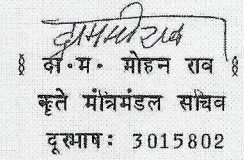 वा॰म॰ मोहन राव
कृते मंत्रिमंडल सचिव
दूरभाष: 3015802